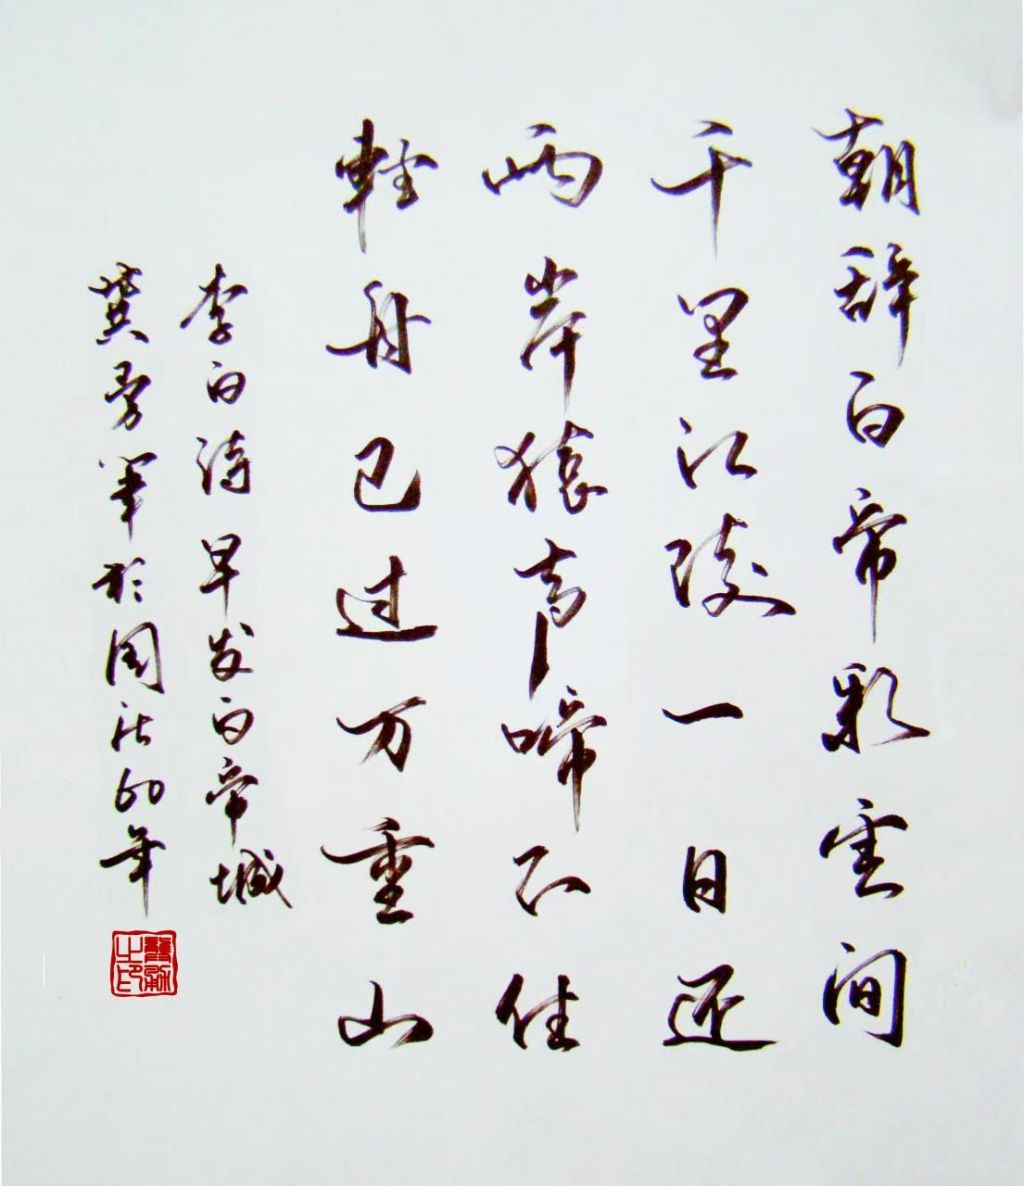 朝辞白帝彩雲间
千里江陵一日还
兩岸猿声啼不住
輕舟已过万重山
李白诗早发白帝城
筆於国 60年
之印